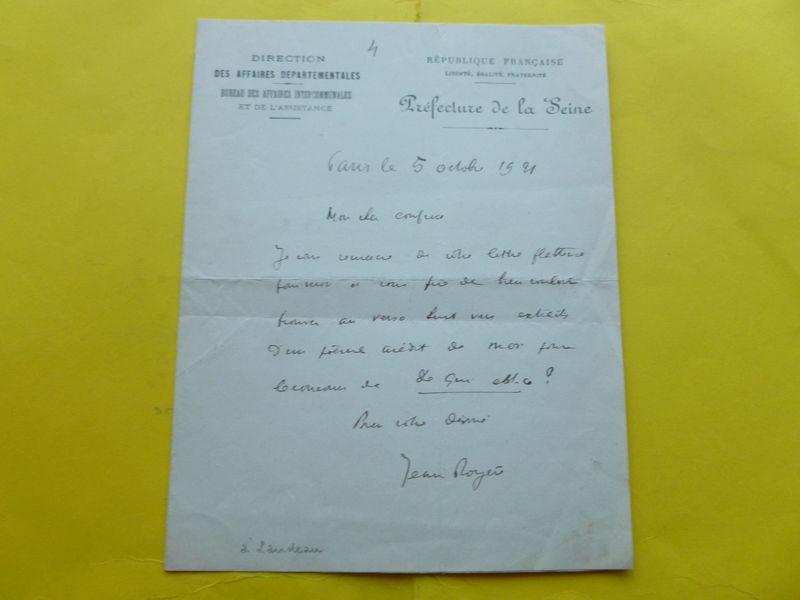 4
DIRECTION
DES AFFAIRES DÉPARTEMENTALES
BUREAU DES AFFAIRES INTERCOMMUNALES
ET DE L'ASSISTANCE
RÉPUBLIQUE FRANÇAISE
LIBERTÉ, ÉGALITÉ, FRATERNITÉ
Préfecture de la Seine
Paris le 5 octobre 1921
Mon cher confrère
Je vous remercie de votre lettre flatteuse
pour moi et vous prie de bien vouloir
trouver au verso huit vers extraits
d'un poème inédit de moi pour
le concours de De qui est-ce ?
Bien votre dévoué
Jean Royère
à Landeau